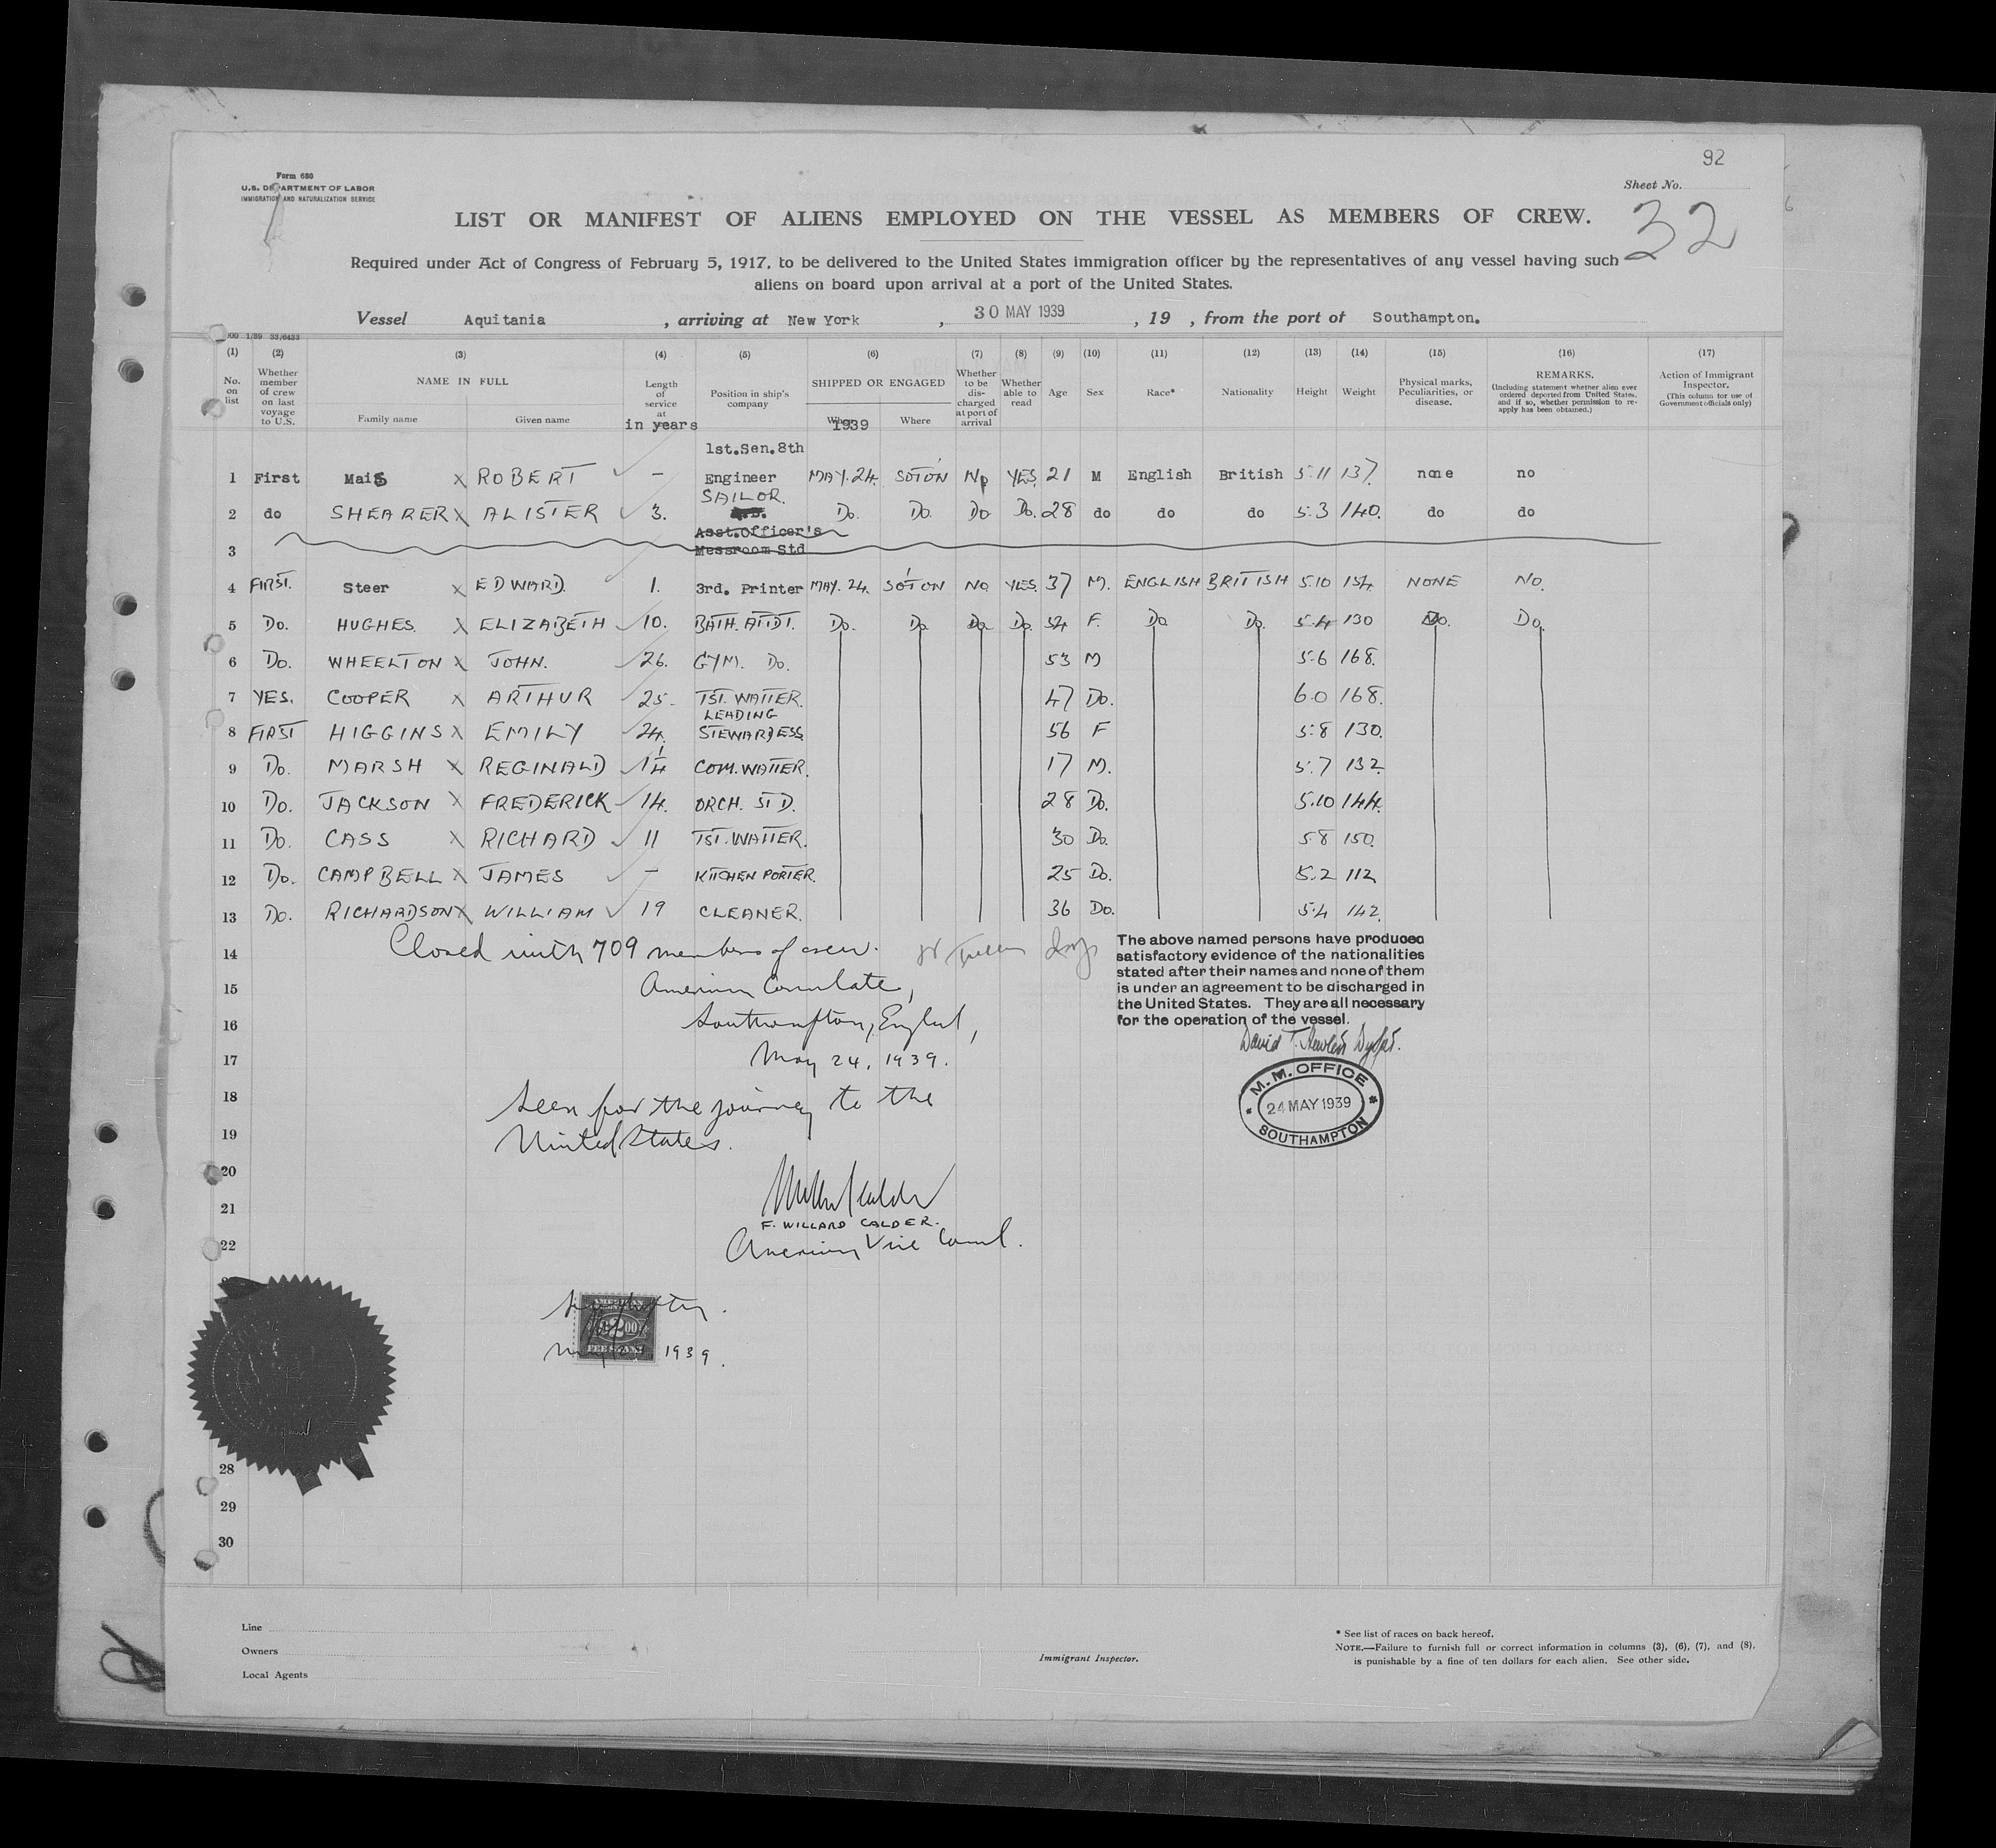 92
Form 680
U.S. DEPARTMENT OF LABOR
IMMIGRATION AND NATURALIZATION SERVICE
Sheet No.
32
LIST OR MANIFEST OF ALIENS EMPLOYED ON THE VESSEL AS MEMBERS OF CREW.
Required under Act of Congress of February 5, 1917, to be delivered to the United States immigration officer by the representatives of any vessel having such
aliens on board upon arrival at a port of the United States.
Vessel Aquitania , arriving at New York , 30 MAY 1939 , 19 , from the port of Southampton.
1/39 33/6433
(1) (2) (3) (4) (5) (6) (7) (8) (9) (10) (11) (12) (13) (14) (15) (16) (17)
No. on list
Whether member of crew on last voyage to U.S.
NAME IN FULL
Family name Given name
Length of service at
in years
Position in ship's company
SHIPPED OR ENGAGED
1939 Where
Whether to be discharged at port of arrival
Whether able to read
Age Sex Race* Nationality Height Weight
Physical marks, Peculiarities, or disease.
REMARKS.
(Including statement whether alien ever ordered deported from United States, and if so, whether permission to reapply has been obtained.)
Action of Immigrant Inspector.
(This column for use of Government officials only)
1st.Sen.8th
1 First Mais X ROBERT - Engineer MAY.24. SOTON No YES. 21 M English British 5.11 137. none no
SAILOR.
2 do SHEARER X ALISTER 3. Do. Do. Do Do. 28 do do do 5.3 140. do do
Asst.Officer's
3 Messroom Std
4 FIRST. Steer X EDWARD. 1. 3rd. Printer MAY. 24. SOTON NO YES. 37 M. ENGLISH BRITISH 5.10 154. NONE NO.
5 Do. HUGHES. X ELIZABETH 10. BATH. ATTDT. Do. Do. Do. Do. 54 F. Do Do. 5.4 130 Do. Do.
6 Do. WHEELTON X JOHN. 26. GYM. Do. 53 M 5.6 168.
7 YES. COOPER X ARTHUR 25. TST. WAITER. 47 Do. 6.0 168.
LEADING
8 FIRST HIGGINS X EMILY 24. STEWARDESS 56 F 5.8 130.
9 Do. MARSH X REGINALD 1¼ COM. WAITER. 17 M. 5.7 132.
10 Do. JACKSON X FREDERICK 14. ORCH. STD. 28 Do. 5.10 144.
11 Do. CASS X RICHARD 11 TST. WAITER. 30 Do. 5.8 150.
12 Do. CAMPBELL X JAMES - KITCHEN PORTER. 25 Do. 5.2 112
13 Do. RICHARDSON X WILLIAM 19 CLEANER. 36 Do. 5.4 142.
14 Closed with 709 members of crew.
15 American Consulate,
16 Southampton, England,
17 May 24, 1939.
18 Seen for the journey to the
19 United States.
20
21
F. WILLARD CALDER.
22 American Vice Consul.
The above named persons have produced
satisfactory evidence of the nationalities
stated after their names and none of them
is under an agreement to be discharged in
the United States. They are all necessary
for the operation of the vessel.
M. M. OFFICE
24 MAY 1939
SOUTHAMPTON
AMERICAN
$2.00
FEE STAMP
1939.
28
29
30
Line
Owners
Local Agents
Immigrant Inspector.
* See list of races on back hereof.
NOTE.—Failure to furnish full or correct information in columns (3), (6), (7), and (8),
is punishable by a fine of ten dollars for each alien. See other side.